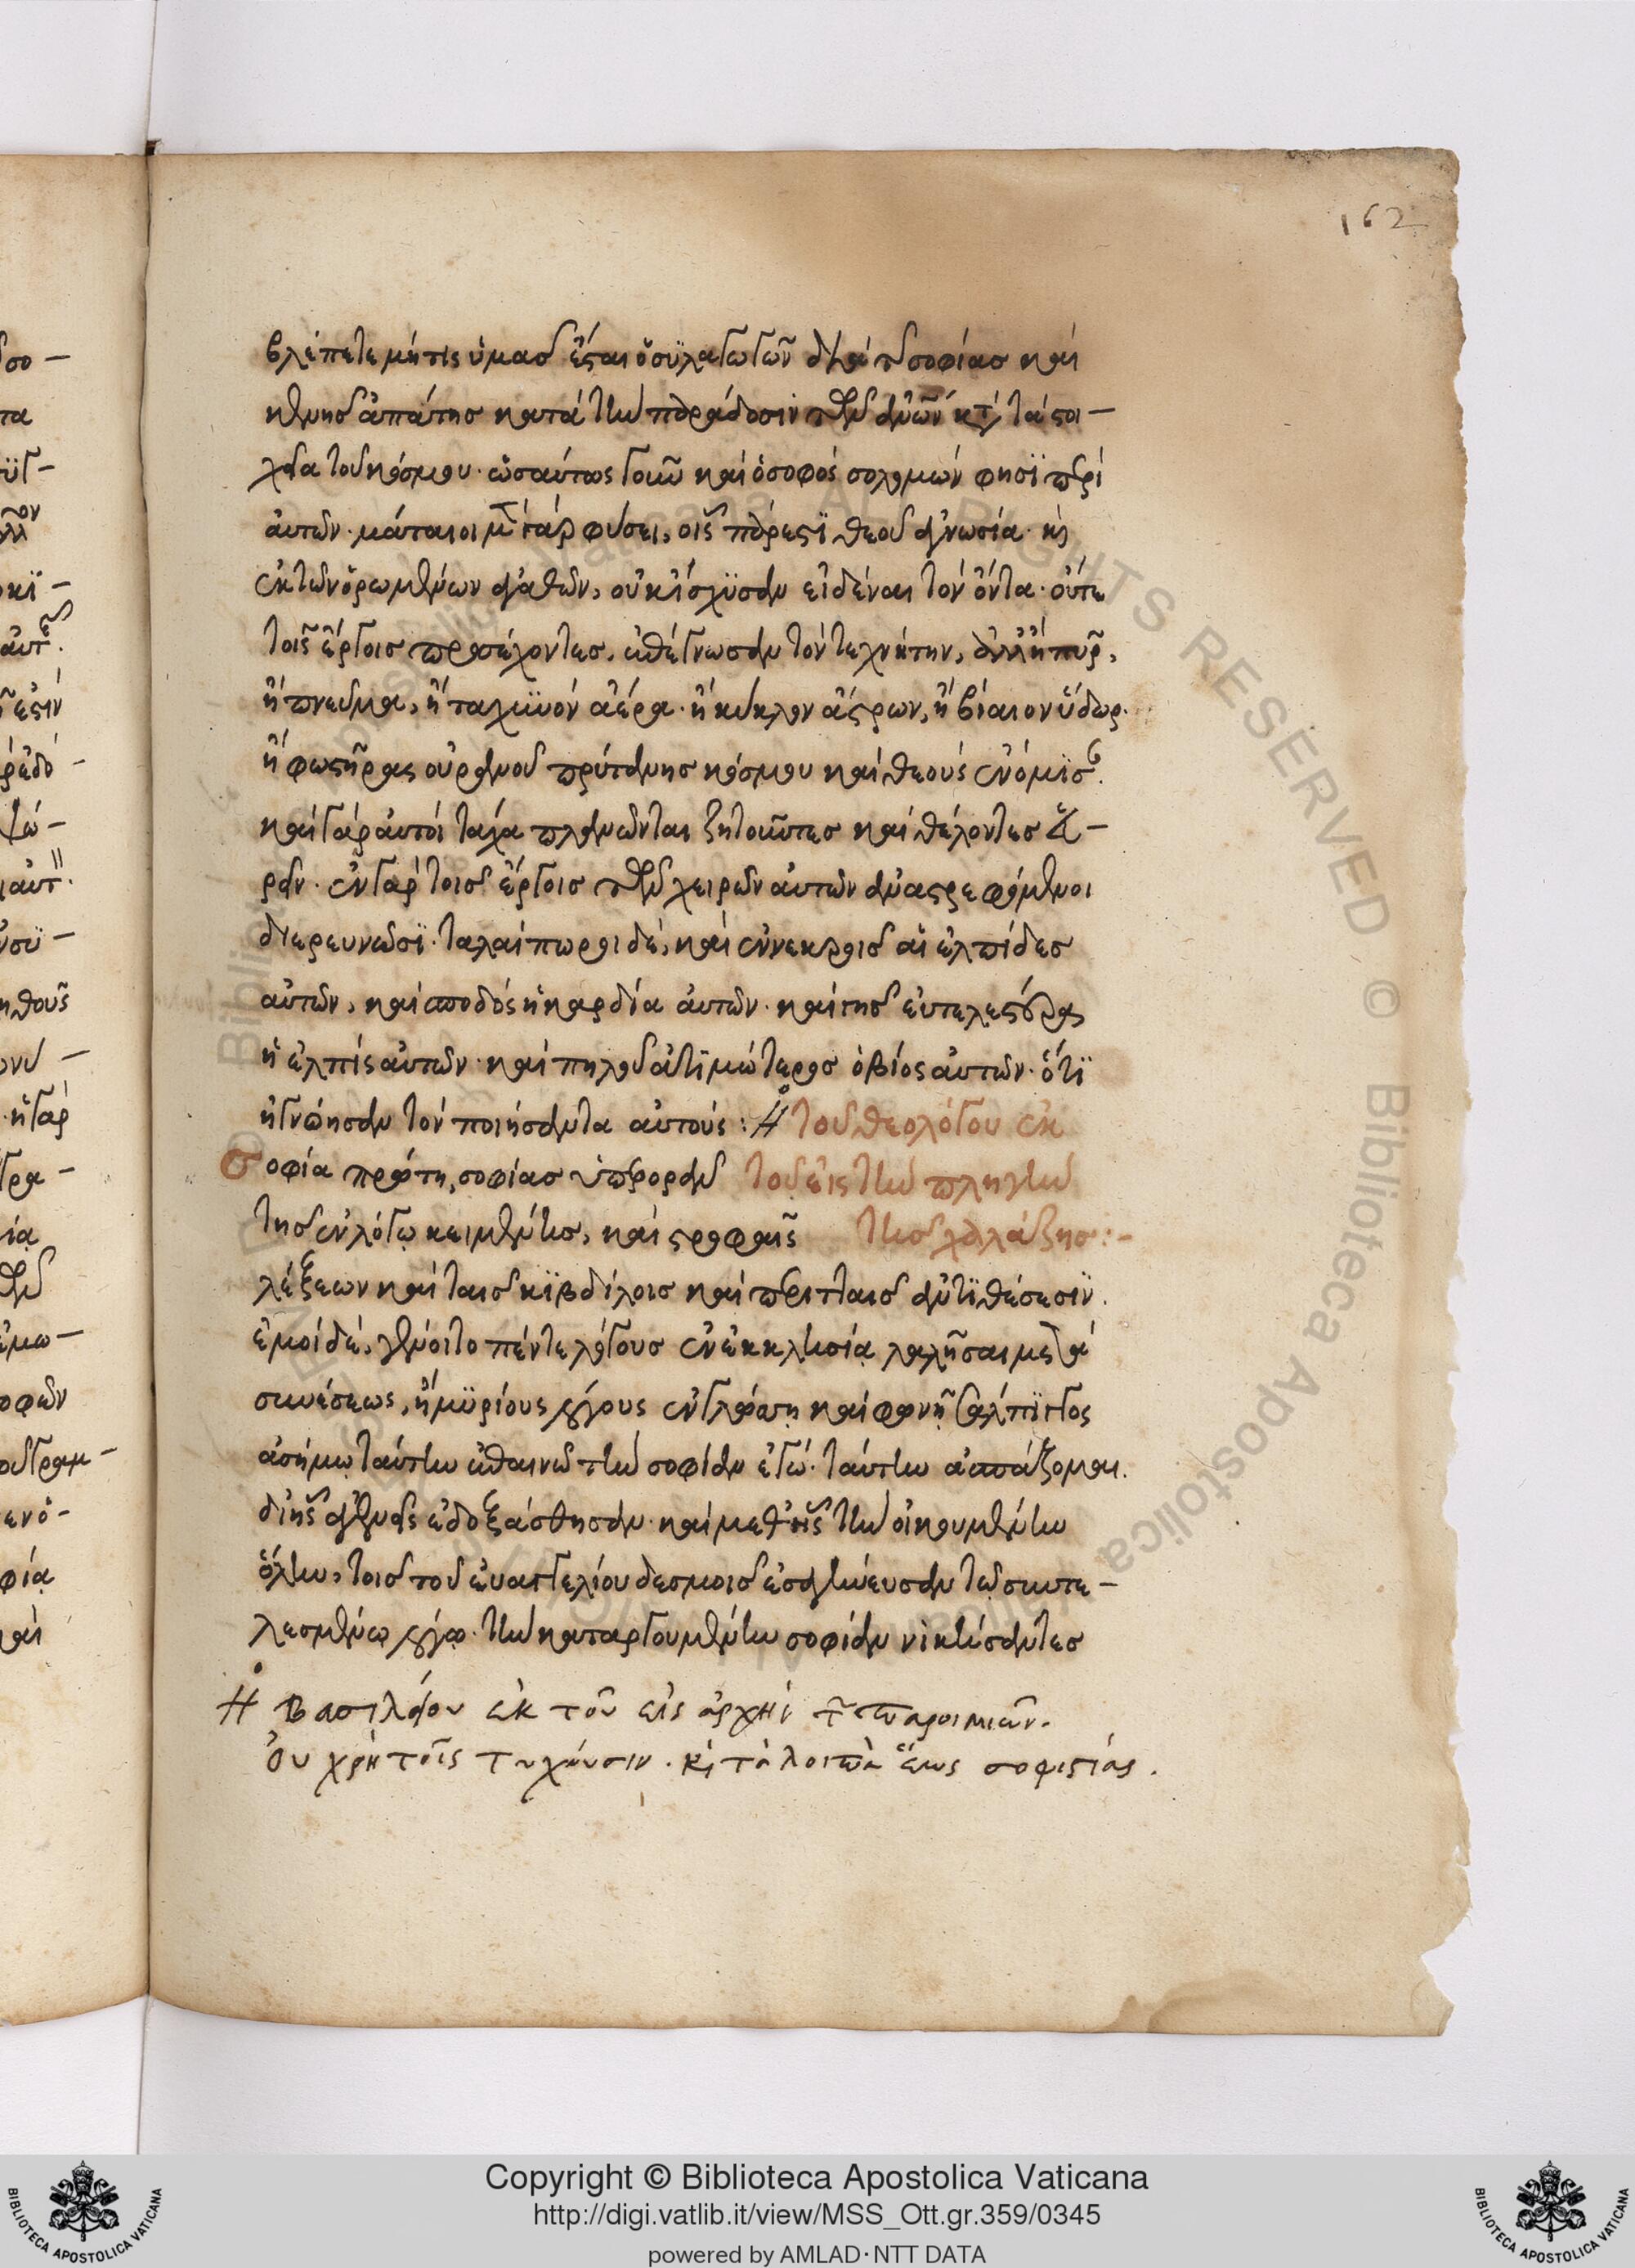 162
βλέπετε μήτις ὑμᾶς ἔσται ὁ συλαγωγῶν διὰ τῆς σοφίας καὶ
κενῆς ἀπάτης κατὰ τὴν παράδοσιν τῶν ἀνῶν κτ̀ τὰ στοι –
χεῖα τοῦ κόσμου· ὡσαύτως γοῦν καὶ ὁ σοφός σολομών φησϊ περὶ
αὐτῶν· μάταιοι μὲν γὰρ φύσει, οἷς πάρεστϊ θεοῦ ἀγνωσία· κὶ
ἐκ τῶν ὁρωμένων ἀγαθῶν, οὐκ ἴσχϋσαν εἰδέναι τὸν ὄντα· οὔτε
τοῖς ἔργοις προσέχοντες, ἐπέγνωσαν τὸν τεχνήτην, ἀλλ' ἢ πῦρ,
ἢ πνεῦμα, ἢ ταχϋνὸν ἀέρα· ἢ κύκλον ἄστρων, ἢ βίαιον ὕδωρ·
ἢ φωστῆρας οὐρανοῦ πρύτάνης κόσμου καὶ θεούς ἐνόμϊσ.
καὶ γὰρ αὐτοὶ τάχα πλανῶνται ζητοῦντες καὶ θέλοντες εὑ –
ρεῖν· ἐν γὰρ τοῖς ἔργοις τῶν χειρῶν αὐτῶν ἀναστρεφόμενοι
διερευνῶσϊ· ταλαίπωροι δέ, καὶ ἐν νεκροῖς αἱ ἐλπίδες
αὐτῶν, καὶ σποδός ἡ καρδία αὐτῶν· καὶ γῆς εὐτελεστέρα
ἡ ἐλπίς αὐτῶν· καὶ πηλοῦ ἀτϊμώτερος ὁ βίος αὐτῶν· ὅτϊ
ἠγνόησαν τὸν ποιήσαντα αὐτούς : Η τοῦ θεολόγου ἐκ
Σοφία πρώτη, σοφίας ὑπερορᾶν τοῦ εἰς τὴν πληγὴν
τῆς ἐν λόγῳ κειμένης, καὶ στροφαῖς τῆς χαλάζης :–
λέξεων καὶ ταῖς κϊβδίλοις καὶ περιτταῖς ἀντϊθέσεσϊν.
ἐμοὶ δέ, γένοιτο πέντε λόγους ἐν ἐκκλησίᾳ λαλῆσαι μετὰ
συνέσεως, ἢ μϋρίους λόγους ἐν γλώσσῃ καὶ φωνῇ σάλπϊγγος
ἀσήμῳ ταύτην ἐπαινῶ τὴν σοφίαν ἐγώ· ταύτην ἀσπάζομαι.
δι' ἧς ἀγενεῖς ἐδοξάσθησαν· καὶ μεθ' ἧς τὴν οἰκουμένην
ὅλην, τοῖς τοῦ εὐαγγελίου δεσμοῖς ἐσαγήνευσαν τῷ συντε –
λεσμένῳ λόγῳ· τὴν καταργουμένην σοφίαν νικήσαντες
Η Βασιλείου ἐκ τοῦ εἰς ἀρχὴν τ̂ παροιμιῶν.
Ὀυ χρὴ τοῖς τυχοῦσιν. κὶ τὰ λοιπὰ ἕως σοφιστίας.
Copyright © Biblioteca Apostolica Vaticana
http://digi.vatlib.it/view/MSS_Ott.gr.359/0345
powered by AMLAD·NTT DATA